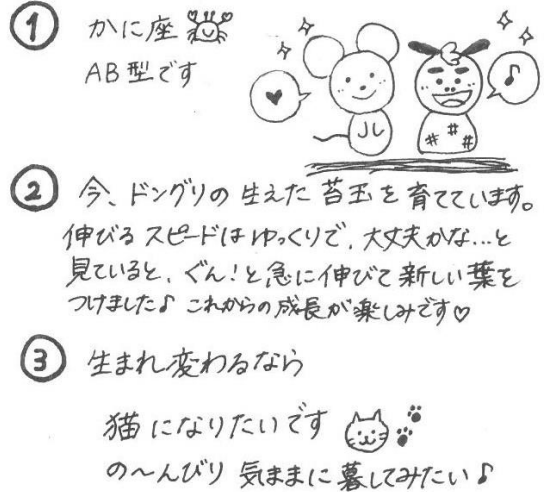 ① かに座
AB型です
♥
♪
ル
② 今、ドングリの生えた苔玉を育てています。
伸びるスピードはゆっくりで、大丈夫かな…と
見ていると、ぐん!と急に伸びて新しい葉を
つけました♪ これからの成長が楽しみです♡
③ 生まれ変わるなら
猫になりたいです
の〜んびり 気ままに暮してみたい♪